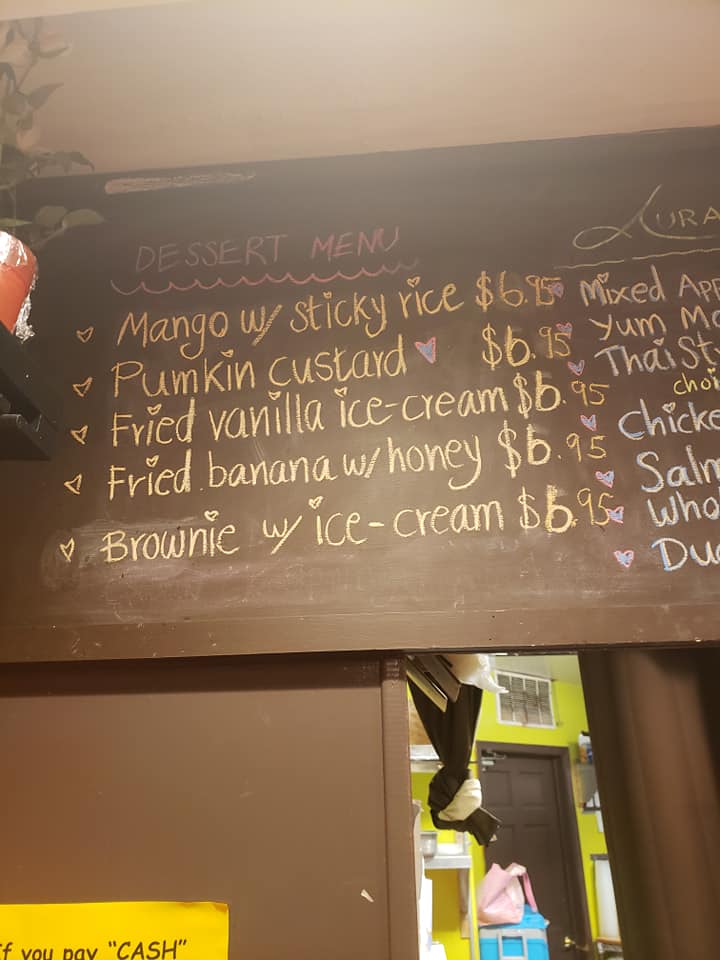 DESSERT MENU
Mango w/ sticky rice $6.95
Pumkin custard $6.95
Fried vanilla ice-cream $6.95
Fried banana w/ honey $6.95
Brownie w/ ice-cream $6.95
Mixed
Yum
Thai
If you pay "CASH"